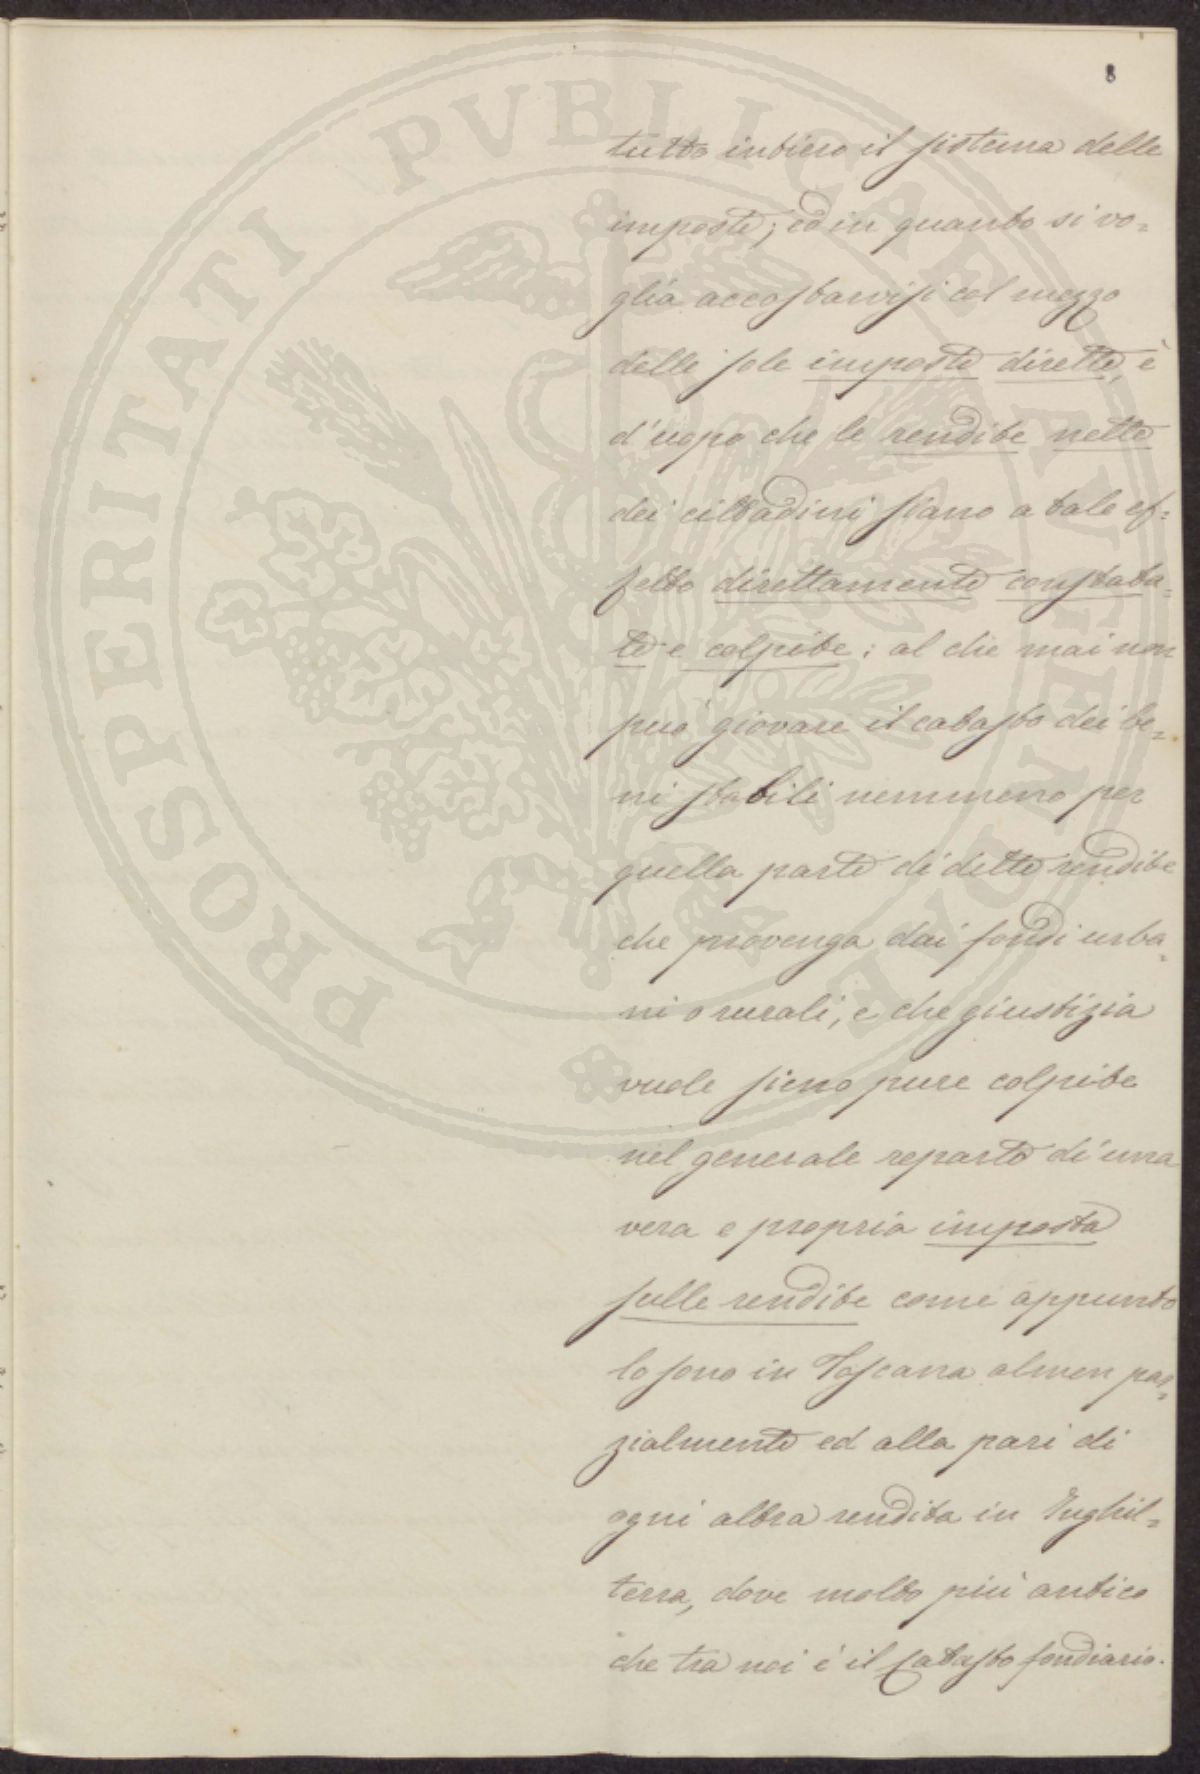 8
PROSPERITATI PVBLICAE AVGENDAE
tutto intiero il sistema delle
imposte; ed in quanto si vo=
glia accostarvisi col mezzo
delle sole imposte dirette, è
d'uopo che le rendite nette
dei cittadini siano a tale ef=
fetto direttamente constata=
te e colpite: al che mai non
può giovare il catasto dei be=
ni stabili nemmeno per
quella parte di dette rendite
che provenga dai fondi urba=
ni o rurali, e che giustizia
vuole sieno pure colpite
nel generale reparto di una
vera e propria imposta
sulle rendite come appunto
lo sono in Toscana almen par=
zialmente ed alla pari di
ogni altra rendita in Inghil=
terra, dove molto più antico
che tra noi è il Catasto fondiario.